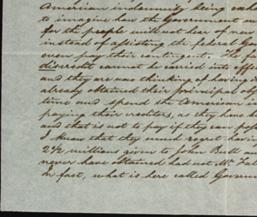 American indemnity being
to imagine how the Government
for the people will not hear of new
instead of assisting the federal Gov
pay their contingent. The
direct cannot be carried into eff
and they are now thinking of having
already obtained their principal obj
time and spend the American
paying their creditors, as they have
and that is not to pay if they can
I know that they would regret having
2½ millions given to John Bull
never have obtained had not Mr.
In fact, what is here called Governm